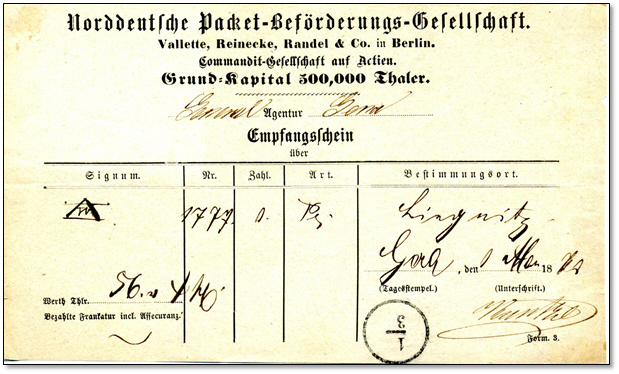 Norddeutsche Packet-Beförderungs-Gesellschaft.
Vallette, Reinecke, Randel & Co. in Berlin.
Commandit-Gesellschaft auf Actien.
Grund-Kapital 500,000 Thaler.
General Agentur Gera
Empfangsschein
über
Signum. Nr. Zahl. Art. Bestimmungsort.
1777. 1. Liegnitz
Gera, den 1 18
(Tagesstempel.) (Unterschrift.)
Werth Thlr. 56.
Bezahlte Frankatur incl. Assecuranz.
1
3
Kunkel
Form. 3.